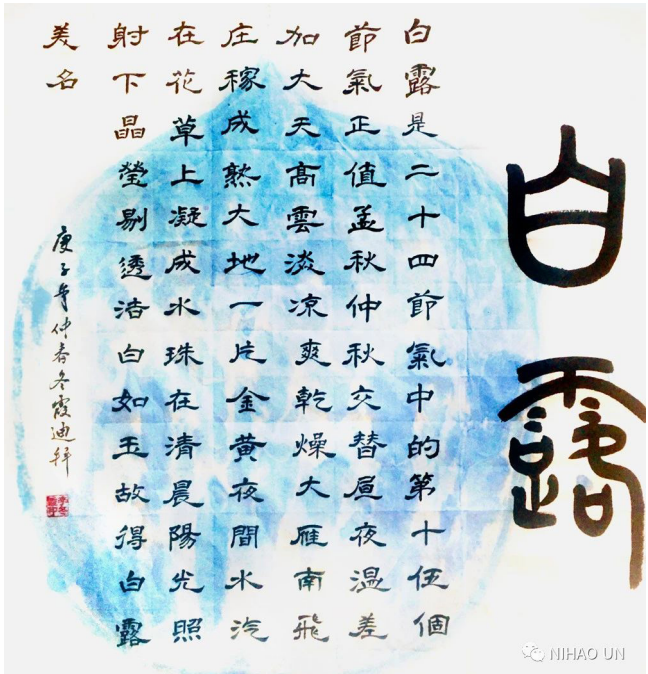 白露
白露是二十四節氣中的第十伍個
節氣正值孟秋仲秋交替昼夜温差
加大天高雲淡凉爽乾燥大雁南飛
庄稼成熟大地一片金黄夜間水汽
在花草上凝成水珠在清晨陽光照
射下晶瑩剔透洁白如玉故得白露
美名
庚子年仲春冬霞迪
NIHAO UN